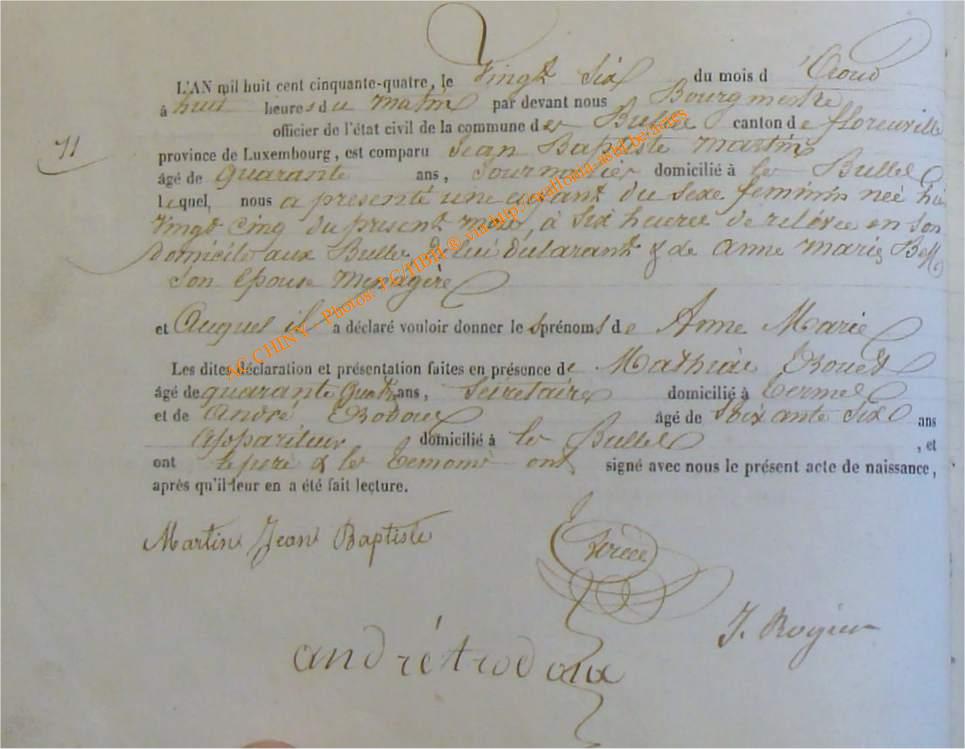 L'AN mil huit cent cinquante-quatre, le Vingt Six du mois d'Aout
à huit heures du matin par devant nous Bourgmestre
officier de l'état civil de la commune des Bulles canton de florenville
11
province de Luxembourg, est comparu Jean Baptiste Martin
âgé de quarante ans, Journalier domicilié à les Bulles
lequel, nous a présenté une enfant du sexe feminin neé hier
Vingt cinq du present mois, à six heures de relevée en son
domicile aux Bulles de lui déclarant & de Anne Marie
Son Epouse Menagère
et Auquel il a déclaré vouloir donner les prénoms de Anne Marie
Les dites déclaration et présentation faites en présence de Mathieu
âgé de quarante Quatre ans, Secretaire domicilié à Termes
et de André Trodoux âgé de Soixante Six ans
Appariteur domicilié à les Bulles, et
ont le père & les temoins ont signé avec nous le présent acte de naissance,
après qu'il leur en a été fait lecture.
Martin Jean Baptiste
J. Rogier
andrétrodoux
AC CHINY - Photos: TC/HBH ® via http://gralloma-asbl.be/divers